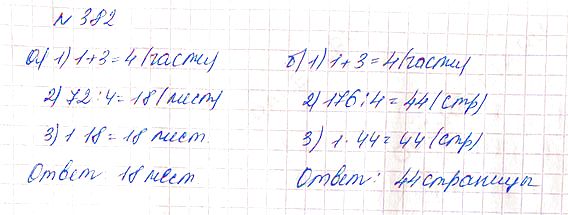 № 382
а) 1) 1+3=4 (части)
2) 72:4=18 (мест)
3) 1 18=18 мест.
Ответ 18 мест
б) 1) 1+3=4 (части)
2) 176:4=44 (стр)
3) 1·44=44 (стр)
Ответ: 44 страницы